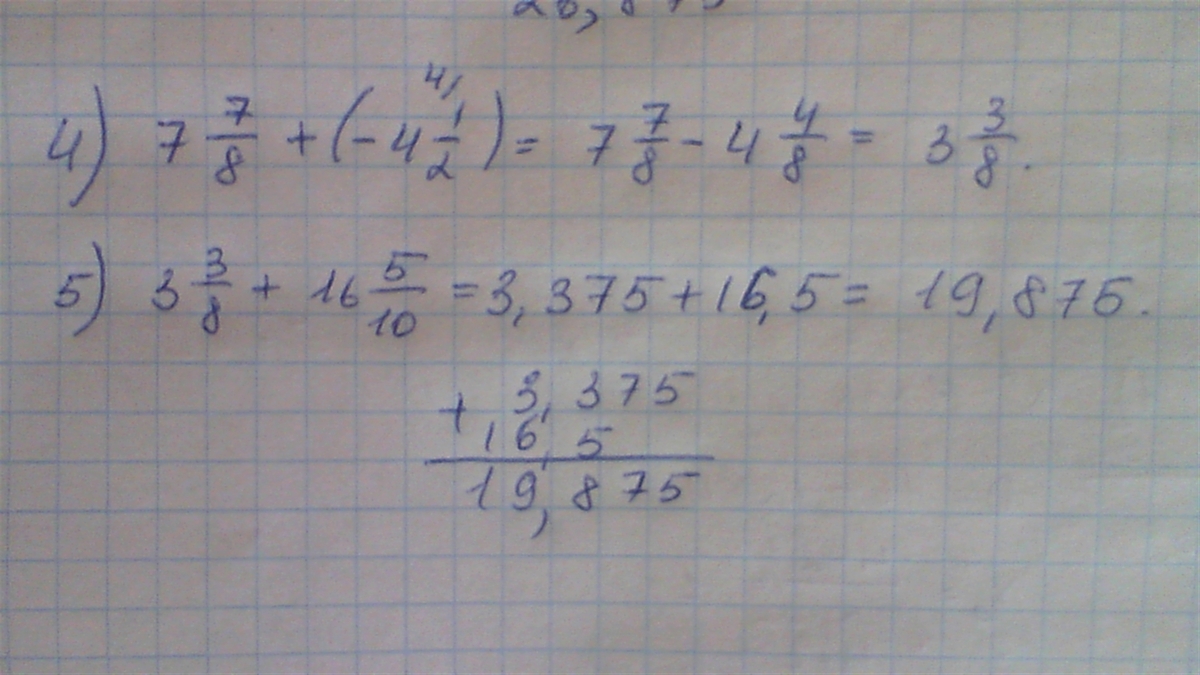 4) 7 7/8 + (- 4 1/2 4/) = 7 7/8 - 4 4/8 = 3 3/8.
5) 3 3/8 + 16 5/10 = 3,375 + 16,5 = 19,875.
+ 3,375
16,5
19,875